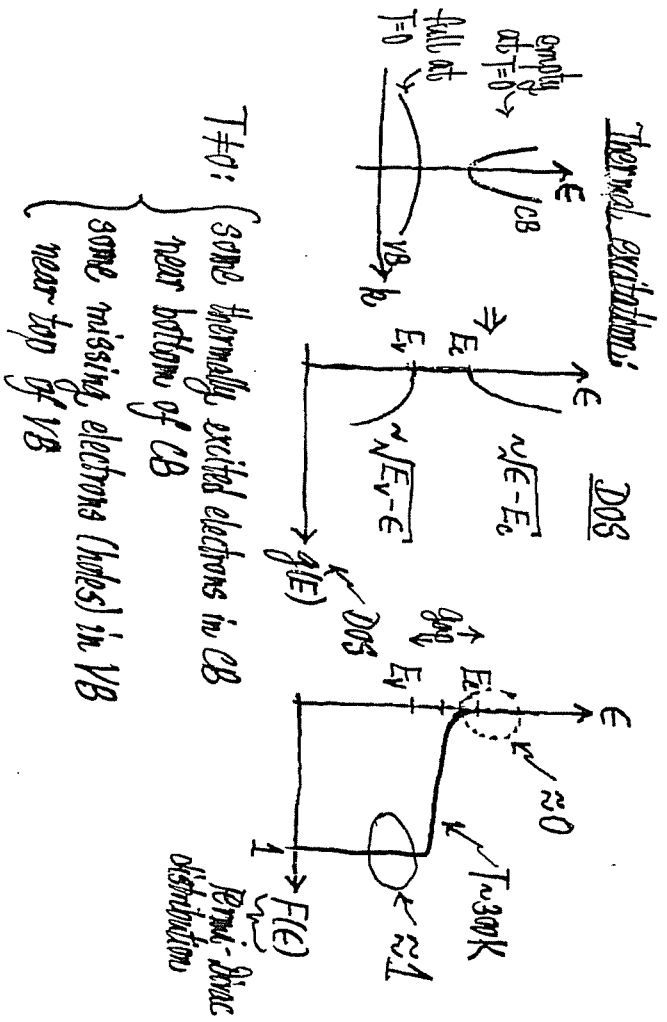 Thermal excitations:
empty
at T=0
full at
T=0
ϵ
CB
VB
k
⇒
DOS
ϵ
Ec
Ev
~√ϵ-Ec
~√Ev-ϵ
g(E)
DOS
ϵ
Ec
gap
Ev
≈0
T~300K
≈1
1
F(ϵ)
Fermi-Dirac
distribution
T≠0:
some thermally excited electrons in CB
near bottom of CB
some missing electrons (holes) in VB
near top of VB